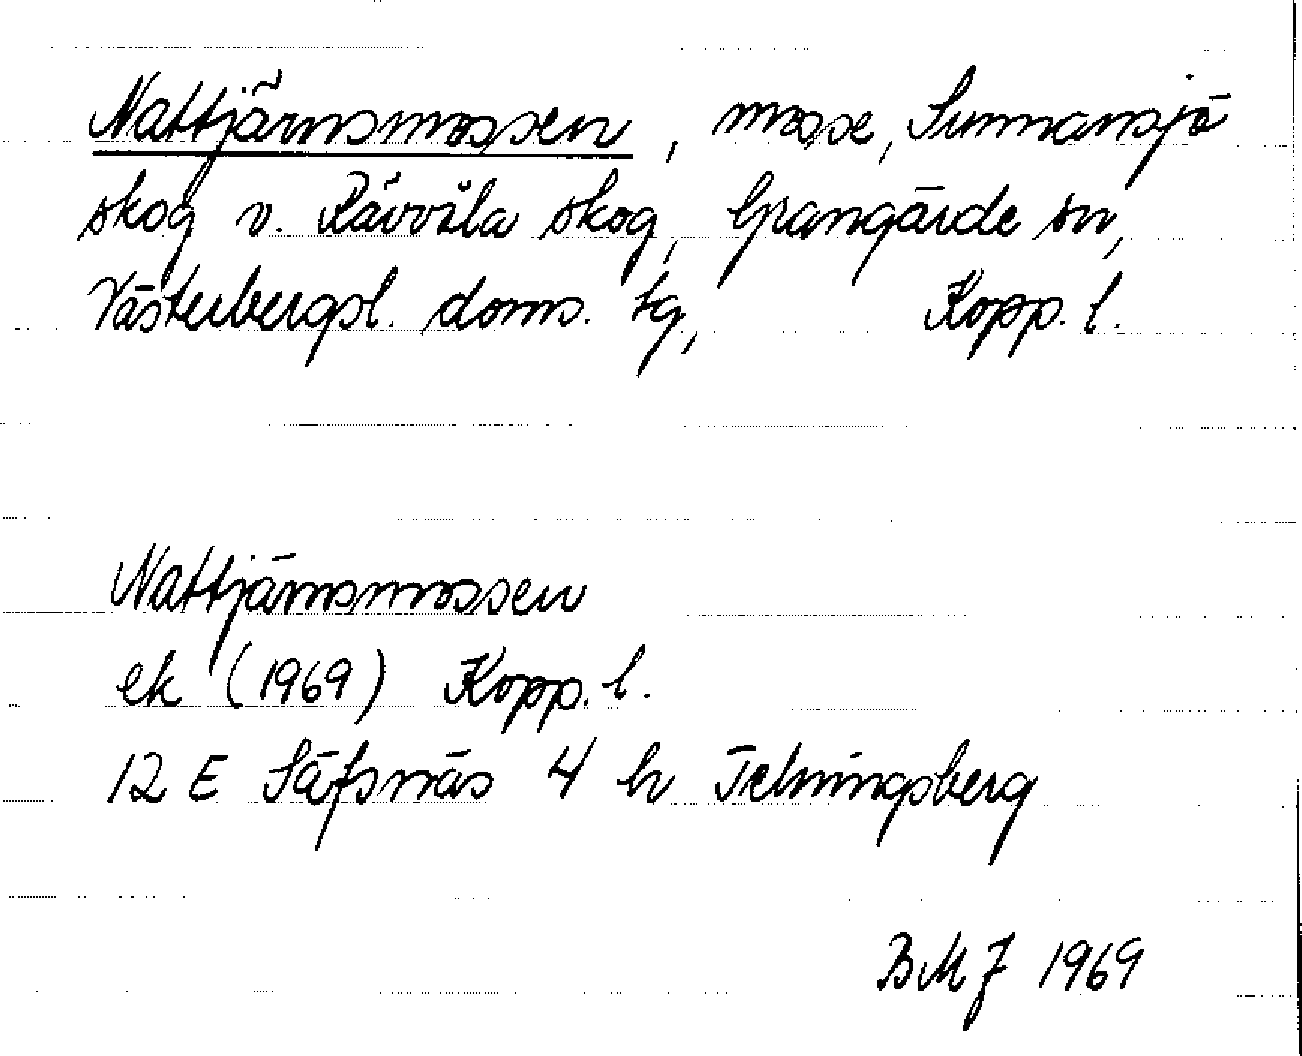 Nattjärnsmossen, mosse, Sunnansjö
skog v. Rävvåla skog, Grangärde sn,
Västerbergsl. doms. tg, Kopp. l.
Nattjärnsmossen
ek (1969) Kopp. l.
12 E Säfsnäs 4 h Telningsberg
BMJ 1969